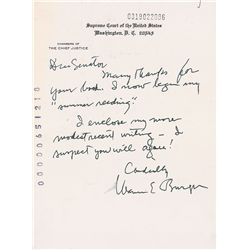 0319022036
Supreme Court of the United States
Washington, D. C. 20543
CHAMBERS OF
THE CHIEF JUSTICE
Dear Senator
Many thanks for
your book. I now begin my
"summer reading."
I enclose my more
modest recent writing – I
suspect you will agree!
Cordially
Warren E Burger